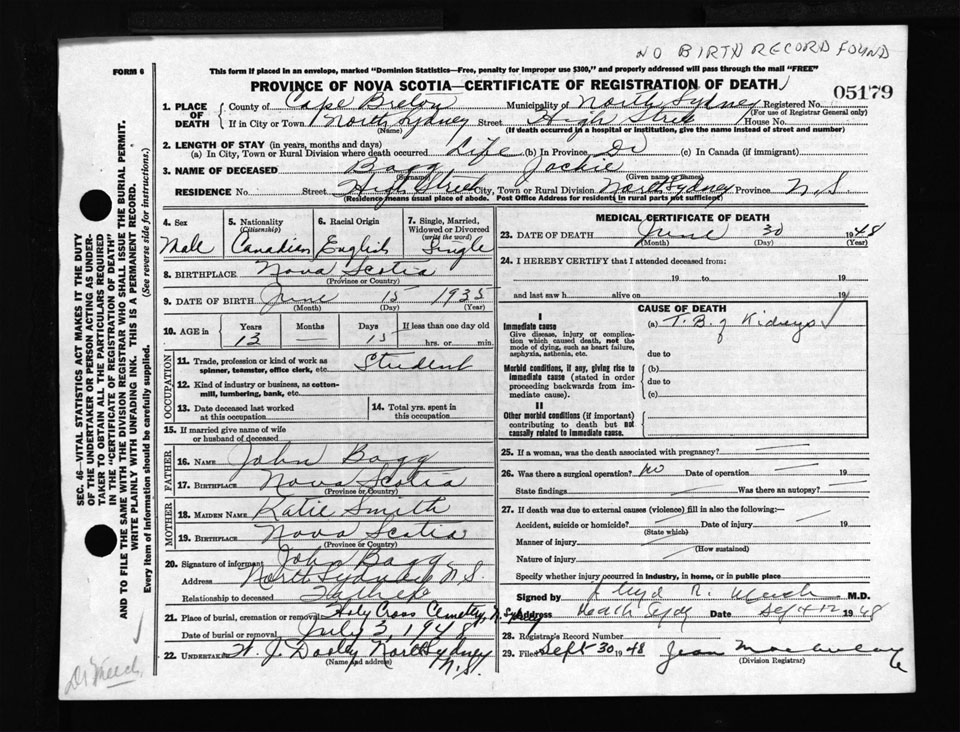 NO BIRTH RECORD FOUND
FORM 6
This form if placed in an envelope, marked "Dominion Statistics—Free, penalty for improper use $300," and properly addressed will pass through the mail "FREE"
PROVINCE OF NOVA SCOTIA—CERTIFICATE OF REGISTRATION OF DEATH
05179
1. PLACE OF DEATH County of Cape Breton Municipality of North Sydney Registered No.
(For use of Registrar General only)
If in City or Town North Sydney Street High Street House No.
(Name) (If death occurred in a hospital or institution, give the name instead of street and number)
2. LENGTH OF STAY (in years, months and days)
(a) In City, Town or Rural Division where death occurred Life (b) In Province Do (c) In Canada (if immigrant)
3. NAME OF DECEASED Bagg Jackie
(Surname) (Given name or names)
RESIDENCE No. Street High Street City, Town or Rural Division North Sydney Province N.S.
(Residence means usual place of abode. Post Office Address for residents in rural parts not sufficient)
4. Sex Male
5. Nationality (Citizenship) Canadian
6. Racial Origin English
7. Single, Married, Widowed or Divorced (write the word) Single
8. BIRTHPLACE Nova Scotia
(Province or Country)
9. DATE OF BIRTH June 15 1935
(Month) (Day) (Year)
10. AGE in Years Months Days If less than one day old
13 — 15 hrs. or min.
OCCUPATION
11. Trade, profession or kind of work as spinner, teamster, office clerk, etc. Student
12. Kind of industry or business, as cotton-mill, lumbering, bank, etc.
13. Date deceased last worked at this occupation
14. Total yrs. spent in this occupation
15. If married give name of wife or husband of deceased
FATHER
16. NAME John Bagg
17. BIRTHPLACE Nova Scotia
(Province or Country)
MOTHER
18. MAIDEN NAME Katie Smith
19. BIRTHPLACE Nova Scotia
(Province or Country)
20. Signature of informant John Bagg
Address North Sydney N.S.
Relationship to deceased Father
21. Place of burial, cremation or removal Holy Cross Cemetery, N. Sydney
Date of burial or removal July 3, 1948
22. UNDERTAKER W. J. Dooley North Sydney N.S.
(Name and address)
MEDICAL CERTIFICATE OF DEATH
23. DATE OF DEATH June 30 1948
(Month) (Day) (Year)
24. I HEREBY CERTIFY that I attended deceased from:
19 to 19
and last saw h alive on 19
CAUSE OF DEATH
I
Immediate cause
Give disease, injury or complication which caused death, not the mode of dying, such as heart failure, asphyxia, asthenia, etc.
(a) T.B. of Kidneys
due to
Morbid conditions, if any, giving rise to immediate cause (stated in order proceeding backwards from immediate cause).
(b)
due to
(c)
II
Other morbid conditions (if important) contributing to death but not causally related to immediate cause.
25. If a woman, was the death associated with pregnancy?
26. Was there a surgical operation? No Date of operation 19
State findings Was there an autopsy?
27. If death was due to external causes (violence) fill in also the following:—
Accident, suicide or homicide? Date of injury 19
(State which)
Manner of injury
(How sustained)
Nature of injury
Specify whether injury occurred in industry, in home, or in public place
Signed by R. M.D.
Address Date Sept 12 1948
28. Registrar's Record Number
29. Filed Sept. 30 1948 Jean
(Division Registrar)
SEC. 46—VITAL STATISTICS ACT MAKES IT THE DUTY
OF THE UNDERTAKER OR PERSON ACTING AS UNDER-
TAKER TO OBTAIN ALL THE PARTICULARS REQUIRED
IN THE "CERTIFICATE OF REGISTRATION OF DEATH"
AND TO FILE THE SAME WITH THE DIVISION REGISTRAR WHO SHALL ISSUE THE BURIAL PERMIT.
WRITE PLAINLY WITH UNFADING INK. THIS IS A PERMANENT RECORD.
Every item of information should be carefully supplied. (See reverse side for instructions.)